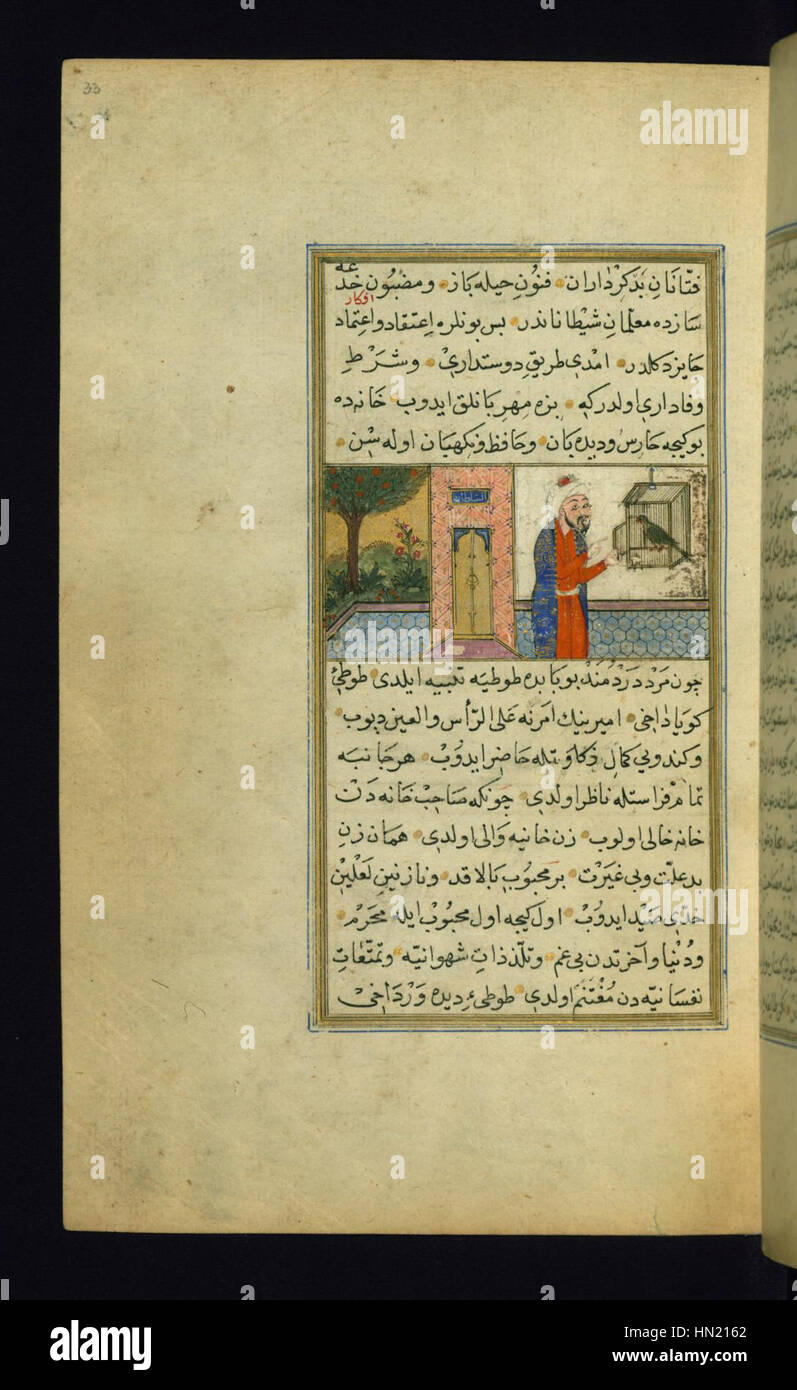 33
فتّانانِ بَدْكِرْدَاران فنُونِ حيله بَاز ومضبُونِ خُدْعَه
افكار
سَازده معلّمانِ شيْطاناندر بس بونلره اِعتقاد و اعِتماد
جَايز دكلدر امْدي طريقِ دوستداري وشَرْطِ
وفاداري اولدركه بزه مهربانلق ايدوب خانه ده
بوكيجه حارس وديده بان وحَافظ ونكهبان اوله سْن
السلطان
چون مَرْد دَرْدْمَنْد بو بابده طوطيه تنبيه ايلدي طوطئ
كويا داخي امير بينك امَرنه عَلى الرّأس والعين ديوب
وكندويي كمالِ ذكاوتله حاضر ايدوُبْ هر جانبه
تمام فراستله ناظر اولدي چونكه صَاحِبْ خَانه دنْ
خانه خالي اولوب زن خانيه وَالي اولدي همان زنِ
بد علّت وبي غيَرتْ بر محبُوبِ بالا قد ونازنينِ لَعْلين
خدّي صَيْد ايدوُبْ اول كيجه اول محبُوبْ ايله محَرمْ
ودُنيا و آخرتدن بي غم وتلّذذاتِ شهوانيّه وتمتّعاتِ
نفسَانيّه دن مُغْتنَم اولدي طوطئ ديده وَرْ دَاخيْ
alamy
Image ID: HN2162
www.alamy.com